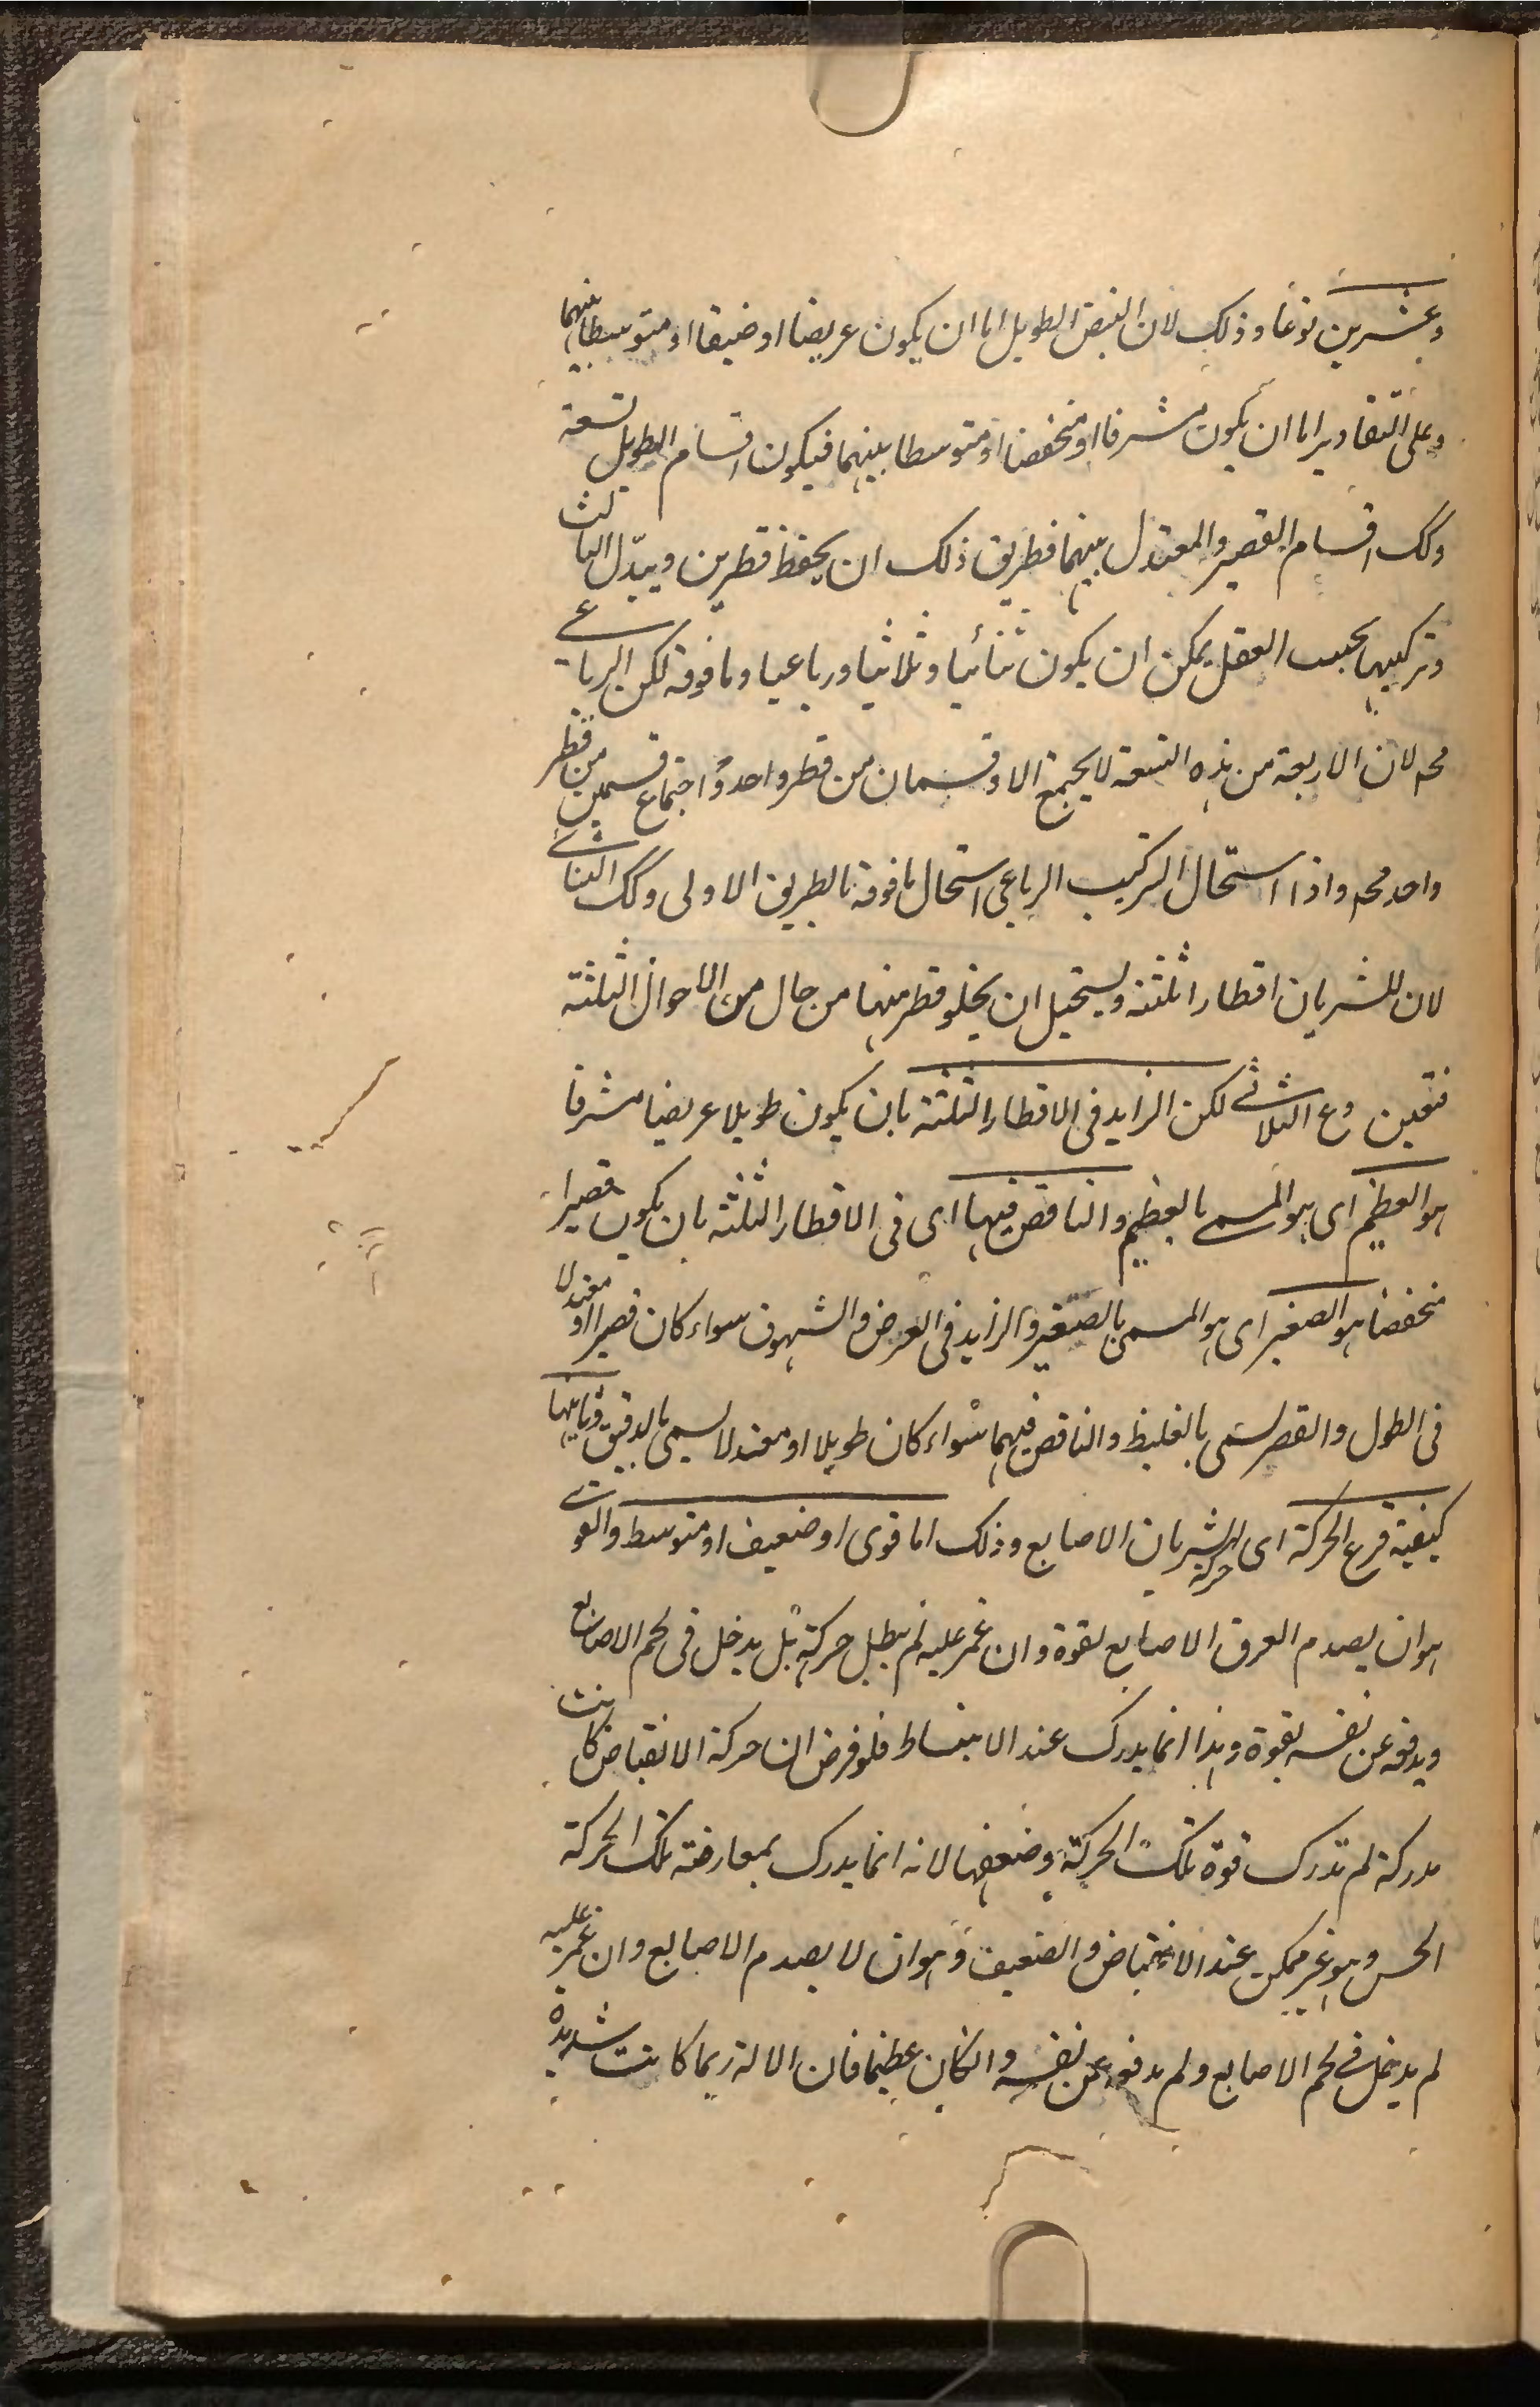 وعشرين نوعا وذلك لان النبض الطويل اما ان يكون عريضا او ضيقا او متوسطا بينهما
وعلى التقادير اما ان يكون مشرفا او منخفضا او متوسطا بينهما فيكون اقسام الطويل تسعة
وكك اقسام القصير والمعتدل بينهما فطريق ذلك ان يحفظ قطرين ويبدّل الثالث
وتركيبها بحسب العقل يمكن ان يكون ثنائيا وثلاثيا ورباعيا وما فوقه لكن الرباعي
مح لان الاربعة من هذه التسعة لا يجتمع الا وقسمان من قطر واحد واجتماع قسمين من قطر
واحد مح واذا استحال التركيب الرباعى استحال ما فوقه بالطريق الاولى وكك الثنائي
لان للشريان اقطارا ثلثة ويستحيل ان يخلو قطر منها من حال من الاحوال الثلثة
فتعين وع الثلاثي لكن الزايد فى الاقطار الثلثة بان يكون طويلا عريضا مشرفا
هو العظيم اى هو المسمى بالعظيم والناقص فيها اى فى الاقطار الثلثة بان يكون قصيرا
منخفضا هو الصغير اى هو المسمى بالصغير والزايد فى العرض والشهوق سواء كان قصيرا او معتدلا
فى الطول والقصر يسمى بالغليظ والناقص فيهما سواء كان طويلا او معتدلا يسمى بالدقيق وثانيها
كيفية قرع الحركة اى حركة الشريان الاصابع وذلك اما قوى او ضعيف او متوسط والقوي
هو ان يصدم العرق الاصابع بقوة وان غمز عليه لم يبطل حركته بل يدخل فى لحم الاصابع
ويدفعه عن نفسه بقوة وهذا انما يدرك عند الانبساط فلو فرض ان حركة الانقباض كانت
مدركة لم تدرك قوة تلك الحركة وضعفها لانه انما يدرك بمعارضة تلك الحركة
الحس وهو غير ممكن عند الانقباض والضعيف وهو ان لا يصدم الاصابع وان غمز عليه
لم يدخل في لحم الاصابع ولم يدفعه عن نفسه وان كان عظيما فان الالة ربما كانت شديدة